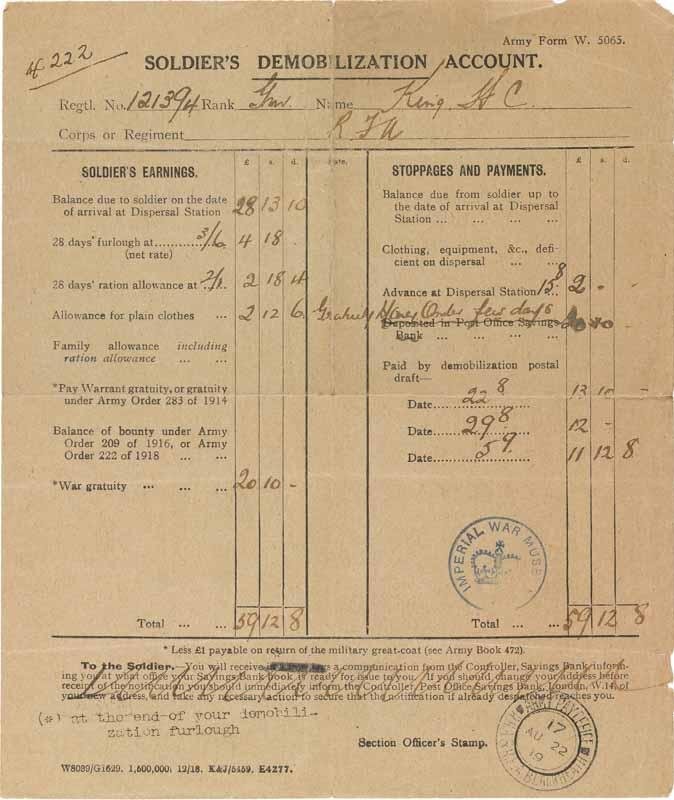 Army Form W. 5065.
4 222
SOLDIER'S DEMOBILIZATION ACCOUNT.
Regtl. No. 121394 Rank Gnr. Name King H C.
Corps or Regiment R F A
SOLDIER'S EARNINGS. £ s. d. Date. STOPPAGES AND PAYMENTS. £ s. d.
Balance due to soldier on the date
of arrival at Dispersal Station 28 13 10
Balance due from soldier up to
the date of arrival at Dispersal
Station ... ... ... ...
28 days' furlough at............ 3/6 4 18 -
(net rate)
Clothing, equipment, &c., defi-
cient on dispersal ... ...
28 days' ration allowance at 2/1 2 18 4
Advance at Dispersal Station 15 8 2 - -
Allowance for plain clothes ... 2 12 6
Gratuity Money Order few days
Deposited in Post Office Savings
Bank ... ... ... ... 10
Family allowance including
ration allowance ... ...
Paid by demobilization postal
draft—
*Pay Warrant gratuity, or gratuity
under Army Order 283 of 1914
Date 22 8 13 10 -
Balance of bounty under Army
Order 209 of 1916, or Army
Order 222 of 1918 ... ...
Date 29 8 12 -
Date 5 9 11 12 8
*War gratuity ... ... ... 20 10 -
IMPERIAL WAR MUSE
Total ... ... 59 12 8 Total ... ... 59 12 8
* Less £1 payable on return of the military great-coat (see Army Book 472).
To the Soldier.—You will receive as a communication from the Controller, Savings Bank, inform-
ing you at what office your Savings Bank book is ready for issue to you. If you should change your address before
receipt of the notification you should immediately inform the Controller, Post Office Savings Bank, London, W.14, of
your new address, and take any necessary action to secure that the notification if already despatched reaches you.
(*) at the end of your demobili-
zation furlough
Section Officer's Stamp.
ARMY PAY OFFICE
17
AU 22
19
BLACKHEATH
W8089/G1629. 1,500,000. 12/18. K&J/5459. E4277.